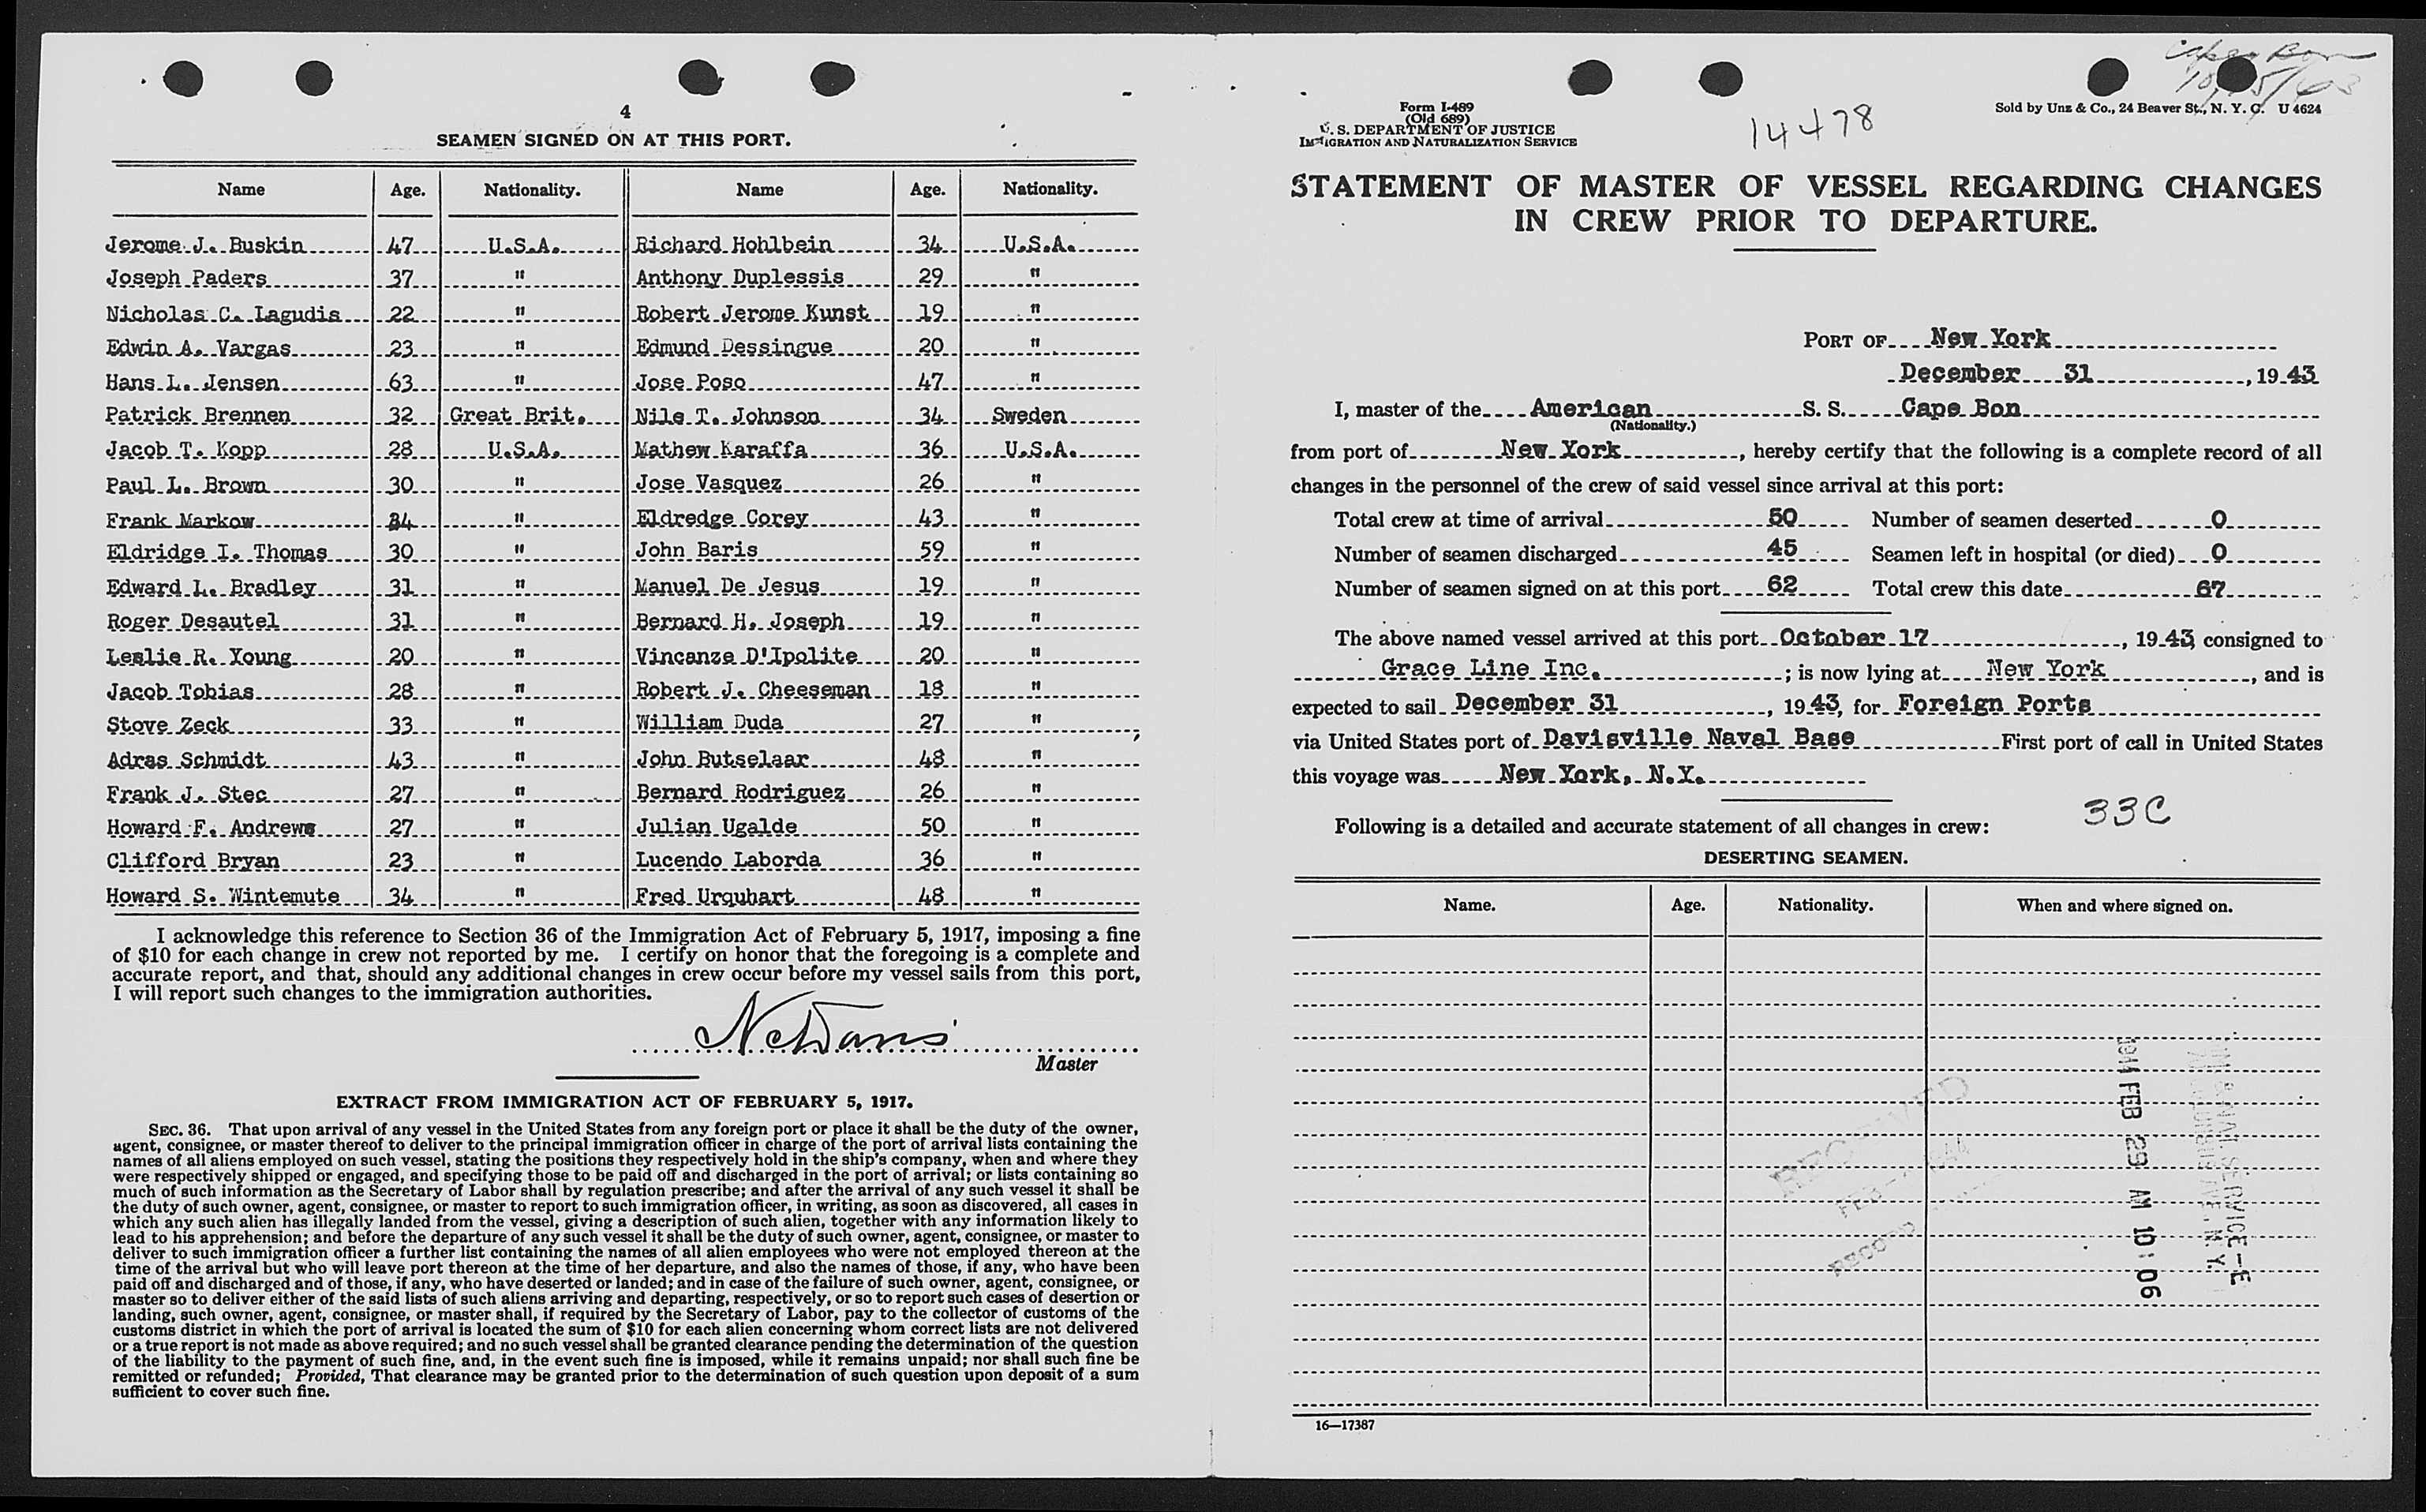 4
SEAMEN SIGNED ON AT THIS PORT.
Name Age. Nationality. Name Age. Nationality.
Jerome J. Buskin 47 U.S.A. Richard Hohlbein 34 U.S.A.
Joseph Paders 37 " Anthony Duplessis 29 "
Nicholas C. Lagudis 22 " Robert Jerome Kunst 19 "
Edwin A. Vargas 23 " Edmund Dessingue 20 "
Hans L. Jensen 63 " Jose Poso 47 "
Patrick Brennen 32 Great Brit. Nils T. Johnson 34 Sweden
Jacob T. Kopp 28 U.S.A. Mathew Karaffa 36 U.S.A.
Paul L. Brown 30 " Jose Vasquez 26 "
Frank Markow 34 " Eldredge Corey 43 "
Eldridge I. Thomas 30 " John Baris 59 "
Edward L. Bradley 31 " Manuel De Jesus 19 "
Roger Desautel 31 " Bernard H. Joseph 19 "
Leslie R. Young 20 " Vincanze D'Ipolite 20 "
Jacob Tobias 28 " Robert J. Cheeseman 18 "
Stove Zeck 33 " William Duda 27 "
Adras Schmidt 43 " John Butselaar 48 "
Frank J. Stec 27 " Bernard Rodriguez 26 "
Howard F. Andrews 27 " Julian Ugalde 50 "
Clifford Bryan 23 " Lucendo Laborda 36 "
Howard S. Wintemute 34 " Fred Urquhart 48 "
I acknowledge this reference to Section 36 of the Immigration Act of February 5, 1917, imposing a fine
of $10 for each change in crew not reported by me. I certify on honor that the foregoing is a complete and
accurate report, and that, should any additional changes in crew occur before my vessel sails from this port,
I will report such changes to the immigration authorities.
Master
EXTRACT FROM IMMIGRATION ACT OF FEBRUARY 5, 1917.
SEC. 36. That upon arrival of any vessel in the United States from any foreign port or place it shall be the duty of the owner,
agent, consignee, or master thereof to deliver to the principal immigration officer in charge of the port of arrival lists containing the
names of all aliens employed on such vessel, stating the positions they respectively hold in the ship's company, when and where they
were respectively shipped or engaged, and specifying those to be paid off and discharged in the port of arrival; or lists containing so
much of such information as the Secretary of Labor shall by regulation prescribe; and after the arrival of any such vessel it shall be
the duty of such owner, agent, consignee, or master to report to such immigration officer, in writing, as soon as discovered, all cases in
which any such alien has illegally landed from the vessel, giving a description of such alien, together with any information likely to
lead to his apprehension; and before the departure of any such vessel it shall be the duty of such owner, agent, consignee, or master to
deliver to such immigration officer a further list containing the names of all alien employees who were not employed thereon at the
time of the arrival but who will leave port thereon at the time of her departure, and also the names of those, if any, who have been
paid off and discharged and of those, if any, who have deserted or landed; and in case of the failure of such owner, agent, consignee, or
master so to deliver either of the said lists of such aliens arriving and departing, respectively, or so to report such cases of desertion or
landing, such owner, agent, consignee, or master shall, if required by the Secretary of Labor, pay to the collector of customs of the
customs district in which the port of arrival is located the sum of $10 for each alien concerning whom correct lists are not delivered
or a true report is not made as above required; and no such vessel shall be granted clearance pending the determination of the question
of the liability to the payment of such fine, and, in the event such fine is imposed, while it remains unpaid; nor shall such fine be
remitted or refunded; Provided, That clearance may be granted prior to the determination of such question upon deposit of a sum
sufficient to cover such fine.
Form I-489
(Old 689)
U. S. DEPARTMENT OF JUSTICE
IMMIGRATION AND NATURALIZATION SERVICE
14478
Sold by Unz & Co., 24 Beaver St., N. Y. C. U 4624
STATEMENT OF MASTER OF VESSEL REGARDING CHANGES
IN CREW PRIOR TO DEPARTURE.
PORT OF New York
December 31, 1943
I, master of the American S. S. Cape Bon
(Nationality.)
from port of New York, hereby certify that the following is a complete record of all
changes in the personnel of the crew of said vessel since arrival at this port:
Total crew at time of arrival 50 Number of seamen deserted 0
Number of seamen discharged 45 Seamen left in hospital (or died) 0
Number of seamen signed on at this port 62 Total crew this date 67
The above named vessel arrived at this port October 17, 1943, consigned to
Grace Line Inc.; is now lying at New York, and is
expected to sail December 31, 1943, for Foreign Ports
via United States port of Davisville Naval Base First port of call in United States
this voyage was New York, N.Y.
33C
Following is a detailed and accurate statement of all changes in crew:
DESERTING SEAMEN.
Name. Age. Nationality. When and where signed on.
RECEIVED
FEB 1944
RECORD
1944 FEB 29 AM 10 06
16—17387